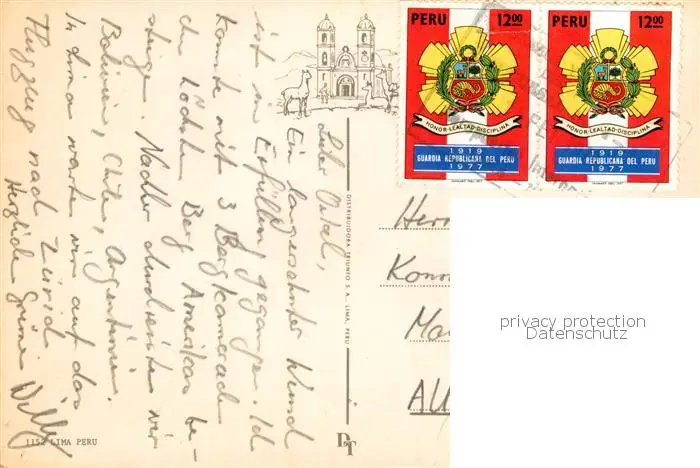 PERU 12.00
HONOR-LEALTAD-DISCIPLINA
1919
GUARDIA REPUBLICANA DEL PERU
1977
PERU 12.00
HONOR-LEALTAD-DISCIPLINA
1919
GUARDIA REPUBLICANA DEL PERU
1977
Ein langersehnter Wunsch
ist in Erfüllung gegangen. Ich
konnte mit 3 Bergkameraden
den höchsten Berg Amerikas be-
steigen. Nachher durchreisten wir
Bolivien, Chile, Argentinien.
In Lima warten wir auf das
Flugzeug nach Zürich
Herzliche Grüsse Willy
DISTRIBUIDORA TRIUNFO S. A., LIMA, PERU
DT
1152 LIMA PERU
privacy protection
Datenschutz